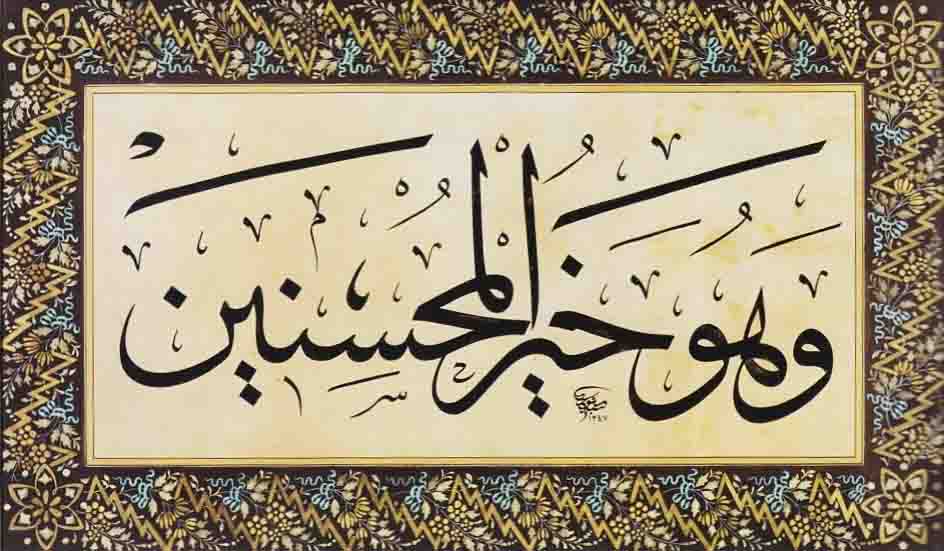 وَهُوَ خَيْرُ الْمُحْسِنِينَ